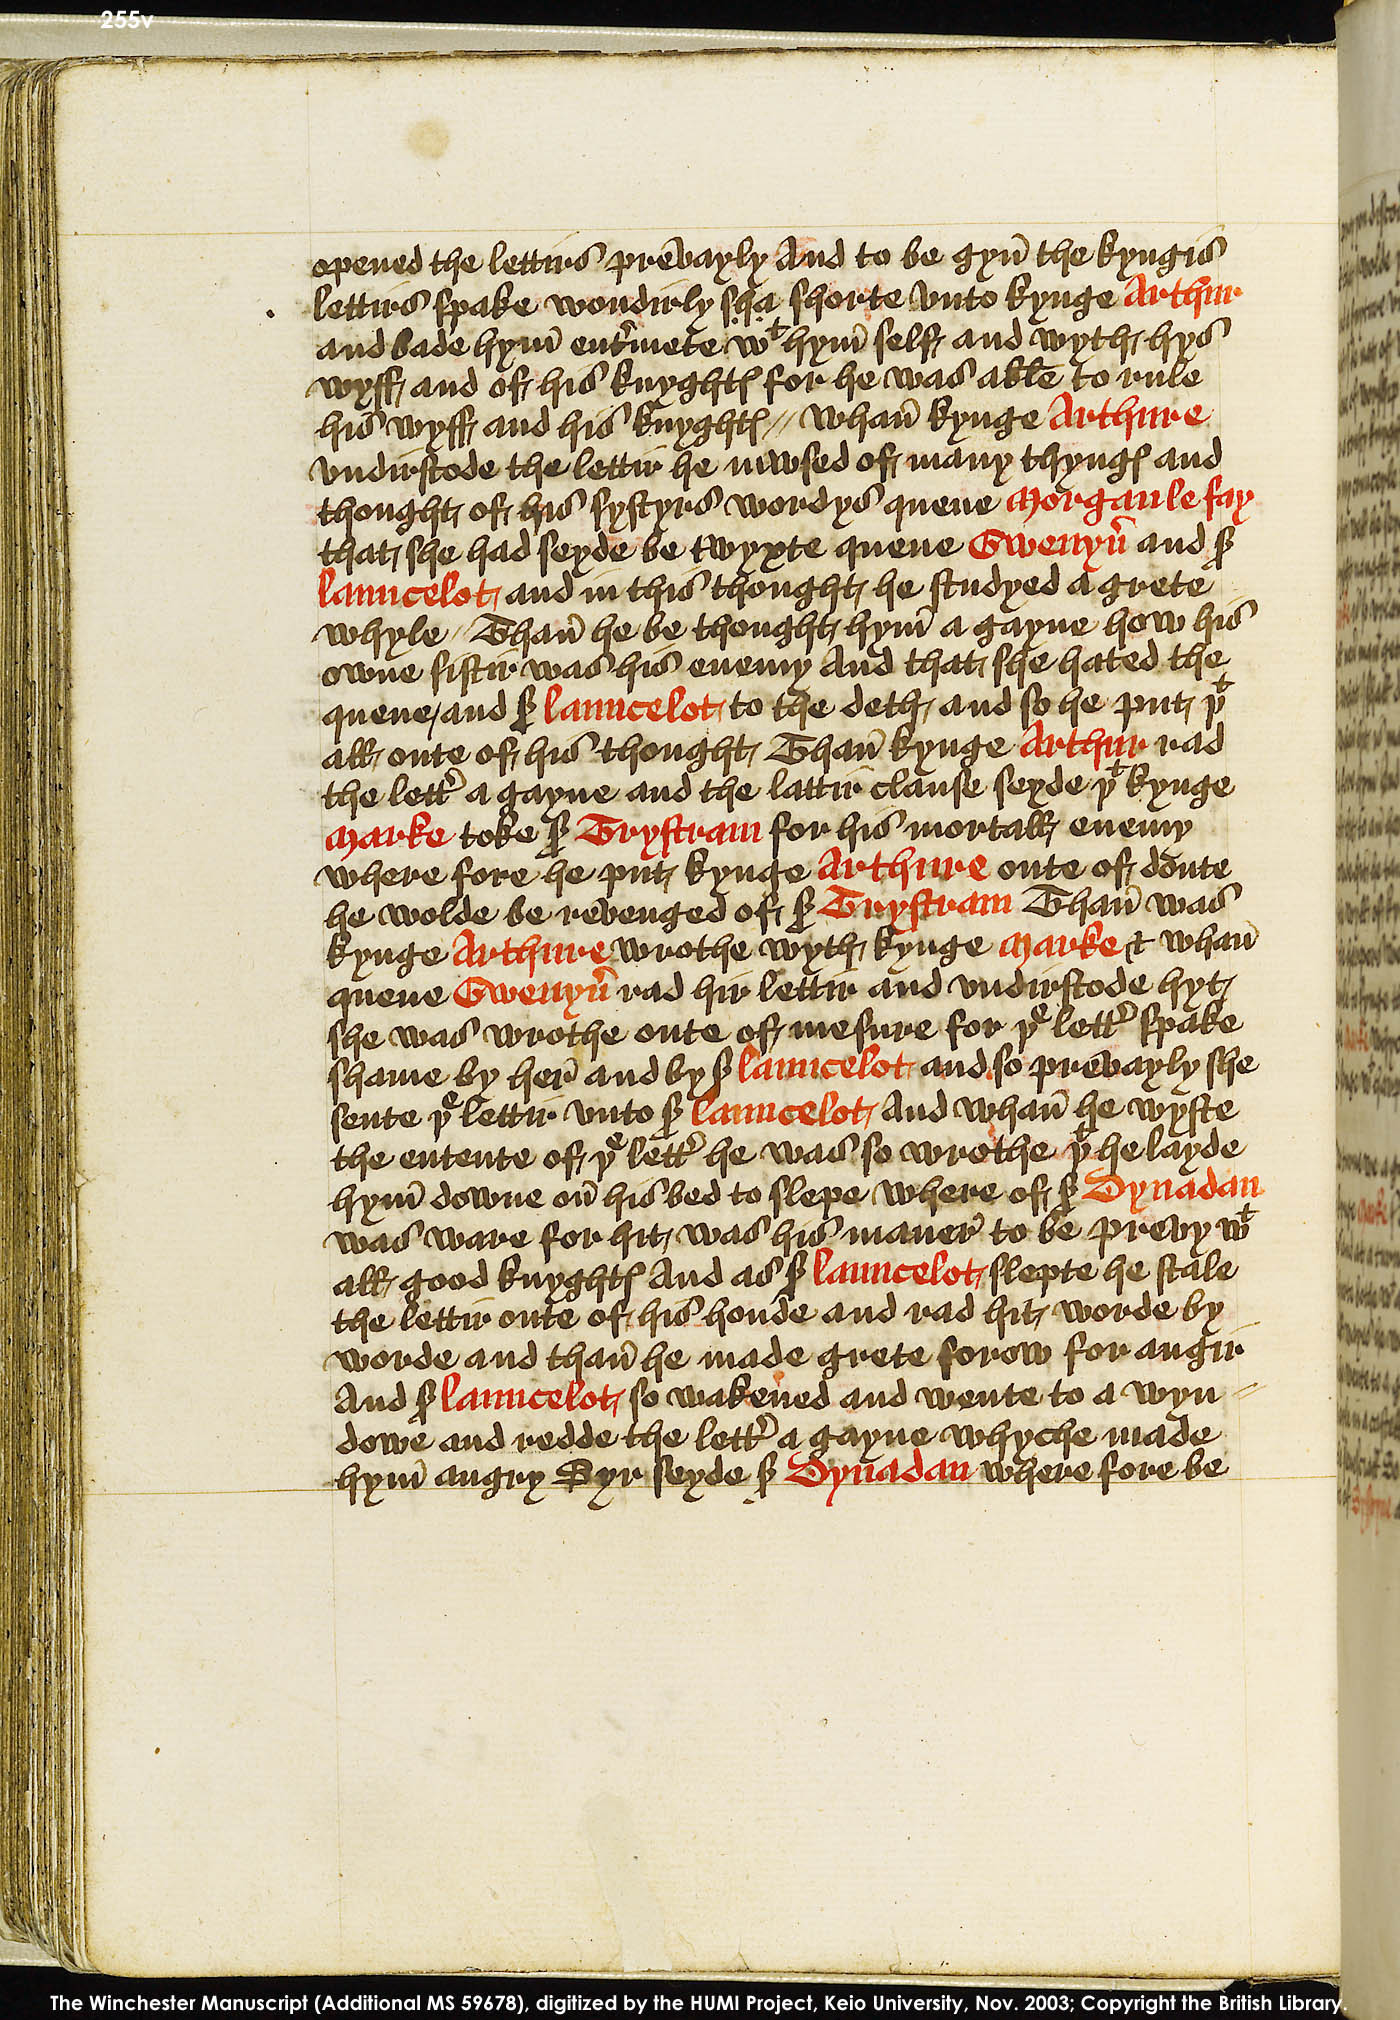 255v
opened the lettirs prevayly And to be gyn̄ the kyngis
lettirs spake wondirly sha shorte vnto kynge Arthur
and bade hym̄ ent͛mete wͭ hym̄ self and wyth hys
wyff and of his knyghtꝭ for he was able to rule
his wyff and his knyghtꝭ // whan̄ kynge Arthure
vndirstode the lettir he mwsed of many thyngꝭ and
thought of his systyrs wordys quene Morgan le fay
that she had seyde be twyxte quene Gwenyu͛ and ẜ
launcelot and in this thought he studyed a grete
whyle // Than̄ he be thought hym̄ a gayne how his
owne sistir was his enemy And that she hated the
quene and ẜ launcelot to the deth and so he put þͭ
all oute of his thought Than̄ kynge Arthur rad
the lett͛ a gayne and the lattir clause seyde þͭ kynge
Marke toke ẜ Trystram for his mortall enemy
where fore he put kynge Arthure oute of doute
he wolde be revenged of ẜ Trystram Than̄ was
kynge Arthure wrothe wyth kynge Marke & whan̄
quene Gwenyu͛ rad hir lettir and vndirstode hyt
she was wrothe oute of mesure for þͤ lett͛ spake
shame by her̄ and by ẜ launcelot and so prevayly she
sente þͤ lettir vnto ẜ launcelot And whan̄ he wyste
the entente of þͤ lett͛ he was so wrothe þͭ he layde
hym̄ downe on̄ his bed to slepe where of ẜ Dynadan
was ware for hit was his maner̄ to be prevy wͭ
all good knyghtꝭ And as ẜ launcelot slepte he stale
the lettir oute of his honde and rad hit worde by
worde and than̄ he made grete sorow for angir
And ẜ launcelot so wakened and wente to a wyn //
dowe and redde the lett͛ a gayne whyche made
hym̄ angry Syr seyde ẜ Dynadan where fore be
The Winchester Manuscript (Additional MS 59678), digitized by the HUMI Project, Keio University, Nov. 2003; Copyright the British Library.